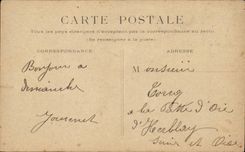 CARTE POSTALE
Tous les pays étrangers n'acceptent pas la correspondance au recto
(Se renseigner à la poste)
CORRESPONDANCE
ADRESSE
Bonjour a
dimanche
Monsieur
a la Patte d'Oie
d'Herblay
Seine et Oise